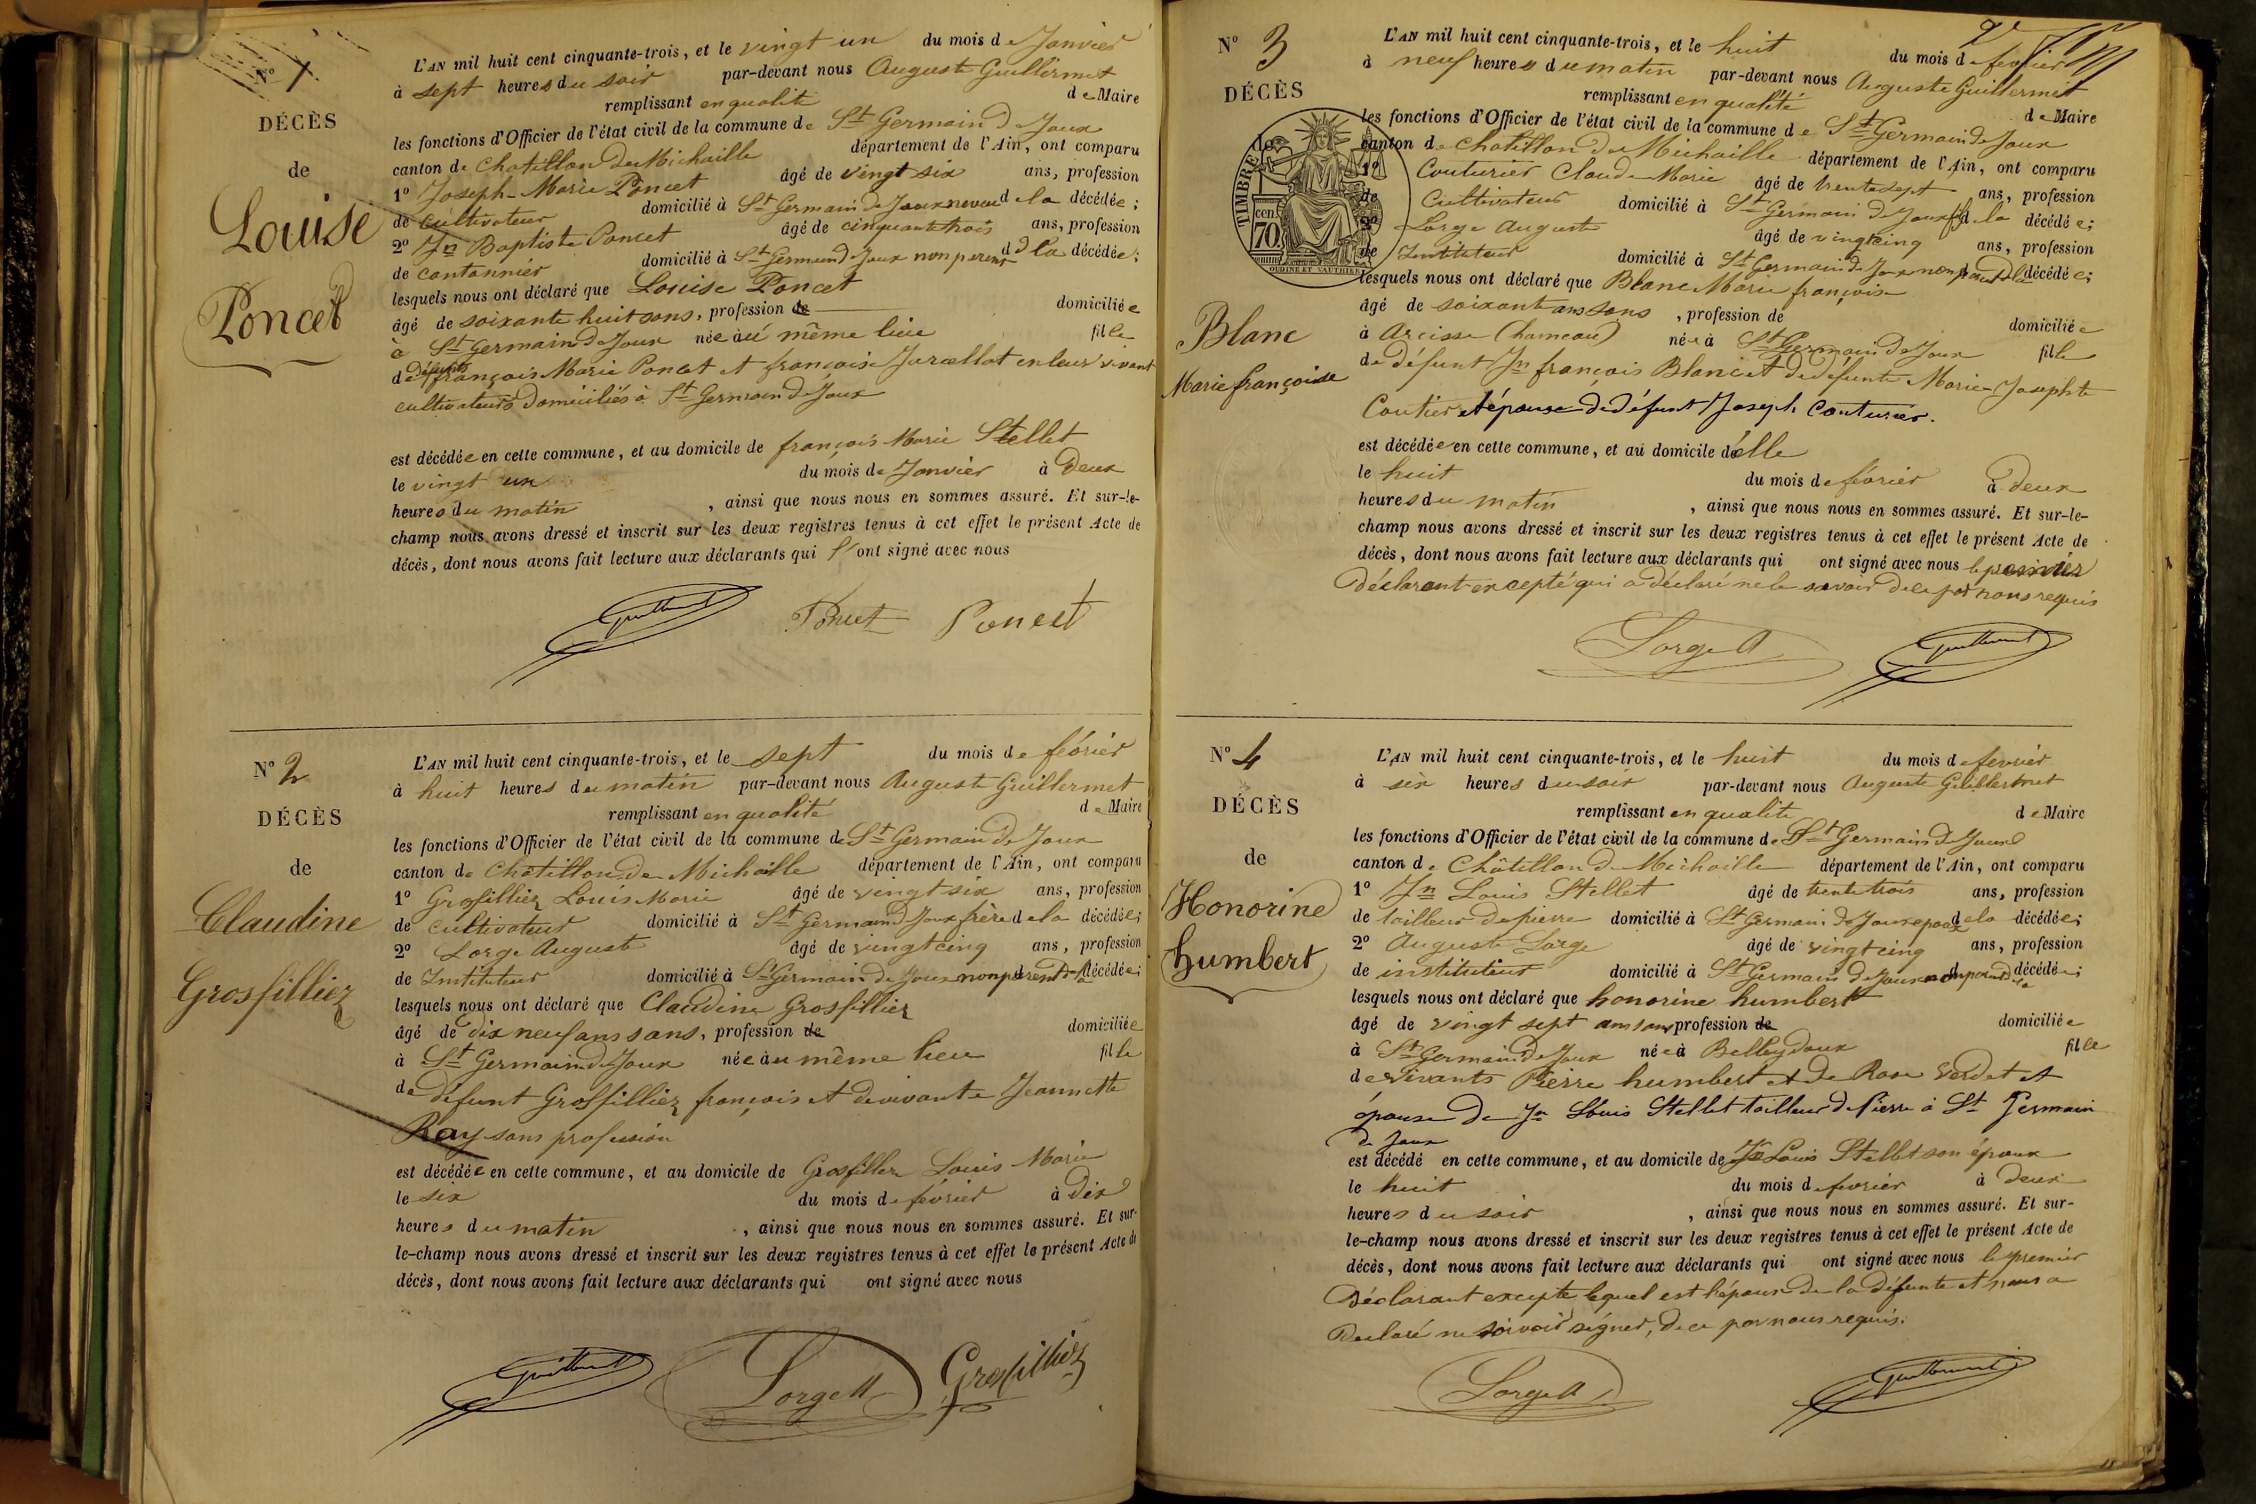 N° 1
DÉCÈS
de
Louise
Poncet
L'AN mil huit cent cinquante-trois, et le vingt un du mois de Janvier
à sept heures du soir par-devant nous Auguste Guillermet
remplissant en qualité de Maire
les fonctions d'Officier de l'état civil de la commune de St Germain de Joux
canton de Chatillon de Michaille département de l'Ain, ont comparu
1° Joseph-Marie Poncet âgé de vingt six ans, profession
de cultivateur domicilié à St Germain de Joux neveu de la décédée;
2° Jn Baptiste Poncet âgé de cinquante trois ans, profession
de cantonnier domicilié à St Germain de Joux non parent de la décédée;
lesquels nous ont déclaré que Louise Poncet
âgé de soixante huit sans, profession de domiciliée
à St Germain de Joux née au même lieu fille
de défunts françois Marie Poncet et françoise Jurcellot en leur vivant
cultivateurs domiciliés à St Germain de Joux
est décédée en cette commune, et au domicile de françois Marie Stellet
le vingt un du mois de Janvier à Deux
heures du matin, ainsi que nous nous en sommes assuré. Et sur-le-
champ nous avons dressé et inscrit sur les deux registres tenus à cet effet le présent Acte de
décès, dont nous avons fait lecture aux déclarants qui l'ont signé avec nous
Guillermet Poncet Poncet
N° 2
DÉCÈS
de
Claudine
Grosfilliez
L'AN mil huit cent cinquante-trois, et le sept du mois de février
à huit heures du matin par-devant nous Auguste Guillermet
remplissant en qualité de Maire
les fonctions d'Officier de l'état civil de la commune de St Germain de Joux
canton de Châtillon de Michaille département de l'Ain, ont comparu
1° Grosfilliez Louis Marie âgé de vingt six ans, profession
de cultivateur domicilié à St Germain de Joux frère de la décédée;
2° Lorge August âgé de vingt cinq ans, profession
de Instituteur domicilié à St Germain de Joux non parent de la décédée;
lesquels nous ont déclaré que Claudine Grosfilliez
âgé de dix neuf ans sans, profession de domiciliée
à St Germain de Joux née au même lieu fille
de défunt Grosfilliez françois et de vivante Jeannette
Ray sans profession
est décédée en cette commune, et au domicile de Grosfilliez Louis Marie
le six du mois de février à dix
heures du matin, ainsi que nous nous en sommes assuré. Et sur-
le-champ nous avons dressé et inscrit sur les deux registres tenus à cet effet le présent Acte de
décès, dont nous avons fait lecture aux déclarants qui ont signé avec nous
Guillermet Lorge A Grosfilliez
N° 3
DÉCÈS
de
TIMBRE
70 cen
OUDINÉ ET VAUTHIER
Blanc
Marie françoise
L'AN mil huit cent cinquante-trois, et le huit du mois de février
à neuf heures du matin par-devant nous Auguste Guillermet
remplissant en qualité de Maire
les fonctions d'Officier de l'état civil de la commune de St Germain de Joux
canton de Chatillon de Michaille département de l'Ain, ont comparu
1° Couturier Claude Marie âgé de trente sept ans, profession
de Cultivateur domicilié à St Germain de Joux fils de la décédée;
2° Lorge August âgé de vingt cinq ans, profession
de Instituteur domicilié à St Germain de Joux non parent de la décédée;
lesquels nous ont déclaré que Blanc Marie françoise
âgé de soixante ans sans, profession de domiciliée
à Arcisse (hameau) née à St Germain de Joux fille
de défunt Jn françois Blanc et de défunte Marie-Josephte
Coutier et épouse de défunt Joseph Couturier.
est décédée en cette commune, et au domicile d'elle
le huit du mois de février à deux
heures du matin, ainsi que nous nous en sommes assuré. Et sur-le-
champ nous avons dressé et inscrit sur les deux registres tenus à cet effet le présent Acte de
décès, dont nous avons fait lecture aux déclarants qui ont signé avec nous le premier
Déclarant excepté qui a déclaré ne le savoir de ce par nous requis
Lorge A Guillermet
N° 4
DÉCÈS
de
Honorine
humbert
L'AN mil huit cent cinquante-trois, et le huit du mois de février
à six heures du soir par-devant nous Auguste Guillermet
remplissant en qualité de Maire
les fonctions d'Officier de l'état civil de la commune de St Germain de Joux
canton de Châtillon de Michaille département de l'Ain, ont comparu
1° Jn Louis Stellet âgé de trente trois ans, profession
de tailleur de pierre domicilié à St Germain de Joux epoux de la décédée;
2° Auguste Lorge âgé de vingt cinq ans, profession
de instituteur domicilié à St Germain de Joux non parent de la décédée;
lesquels nous ont déclaré que honorine humbert
âgé de vingt sept ans sans profession de domiciliée
à St Germain de Joux née à Belleydoux fille
de vivants Pierre humbert et de Rose Verdet et
épouse de Jn Louis Stellet tailleur de Pierre à St Germain
de Joux
est décédé en cette commune, et au domicile de Jn Louis Stellet son époux
le huit du mois de février à deux
heures du soir, ainsi que nous nous en sommes assuré. Et sur-
le-champ nous avons dressé et inscrit sur les deux registres tenus à cet effet le présent Acte de
décès, dont nous avons fait lecture aux déclarants qui ont signé avec nous le premier
Déclarant excepte lequel est l'époux de la défunte et nous a
Declaré ne savoir signer, de ce par nous requis.
Lorge A Guillermet